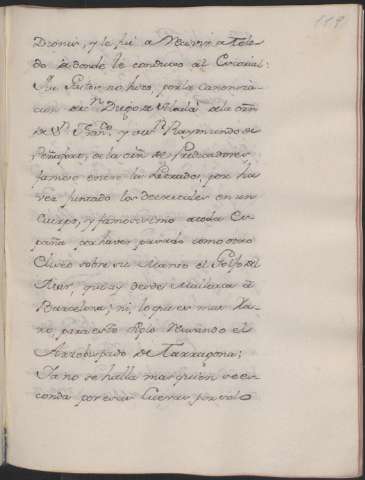 119
Dionis, y le fué a Recivir a Tole-
do de donde le conduxo al Escorial:
Que fiestas no hizo, por la canoniza-
cion de Sn. Diego de Alcalá, de la orñ
de Sn. Franco. y de Sn. Raymundo de
Peñafort, de la orñ de Predicadores,
famoso entre los Letrados, por ha
ver juntado los decretales en un
Cuerpo, y famosissimo a toda Es-
paña por haver pasado como otro
sobre su Manto el Golfo del
Mar, que ay desde Mallorca à
Barcelona; ni, lo que es mas Ra-
ro, para esto Rentando el
Arzobispado de Tarragona;
Ya no se halla mas quien se es-
conda por esas Cuevas por solo